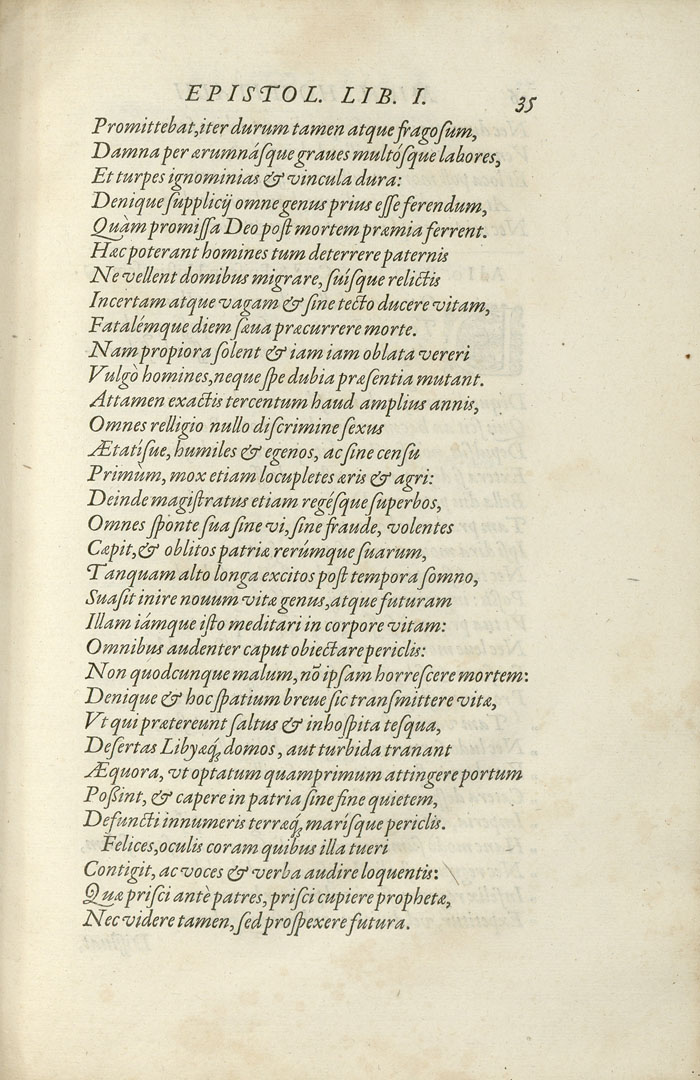 EPISTOL. LIB. I. 35
Promittebat, iter durum tamen atque fragosum,
Damna per ærumnásque graues multósque labores,
Et turpes ignominias & vincula dura:
Denique supplicij omne genus prius esse ferendum,
Quàm promissa Deo post mortem præmia ferrent.
Hæc poterant homines tum deterrere paternis
Ne vellent domibus migrare, suísque relictis
Incertam atque vagam & sine tecto ducere vitam,
Fatalémque diem sæua præcurrere morte.
Nam propiora solent & iam iam oblata vereri
Vulgò homines, neque spe dubia præsentia mutant.
Attamen exactis tercentum haud amplius annis,
Omnes relligio nullo discrimine sexus
Ætatisue, humiles & egenos, ac sine censu
Primùm, mox etiam locupletes æris & agri:
Deinde magistratus etiam regésque superbos,
Omnes sponte sua sine vi, sine fraude, volentes
Cæpit, & oblitos patriæ rerúmque suarum,
Tanquam alto longa excitos post tempora somno,
Suasit inire nouum vitæ genus, atque futuram
Illam iámque isto meditari in corpore vitam:
Omnibus audenter caput obiectare periclis:
Non quodcunque malum, nõ ipsam horrescere mortem:
Denique & hoc spatium breue sic transmittere vitæ,
Vt qui prætereunt saltus & inhospita tesqua,
Desertas Libyæq́; domos, aut turbida tranant
Æquora, vt optatum quamprimum attingere portum
Poßint, & capere in patria sine fine quietem,
Defuncti innumeris terræq́; marísque periclis.
Felices, oculis coram quibus illa tueri
Contigit, ac voces & verba audire loquentis:
Quæ prisci antè patres, prisci cupiere prophetæ,
Nec videre tamen, sed prospexere futura.